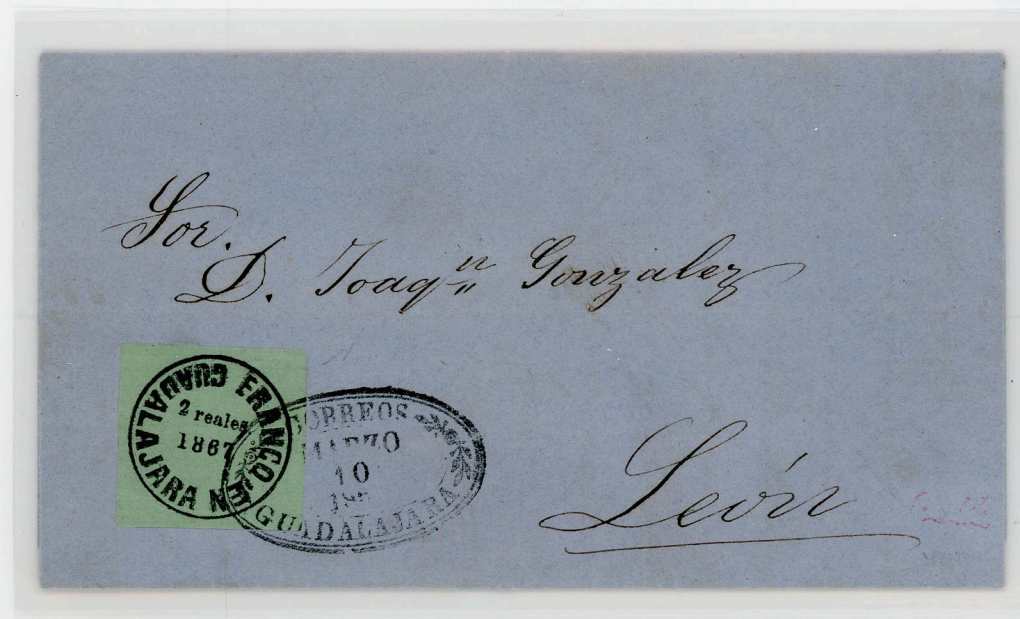 Sor.
D. Joaqn Gonzalez
FRANCO EN GUADALAJARA
2 reales
1867
CORREOS
MARZO
10
GUADALAJARA
León